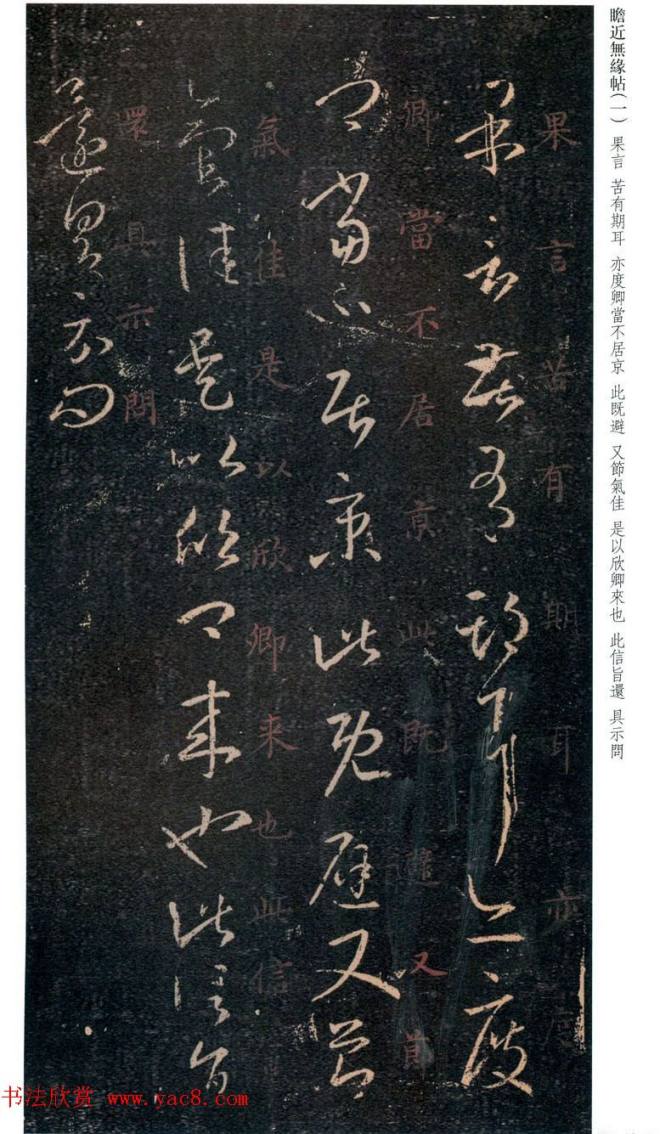 瞻近無緣帖(一) 果言 苦有期耳 亦度卿當不居京 此既避 又節氣佳 是以欣卿來也 此信旨還 具示問
果言苦有期耳亦度
卿當不居京此既避又節
氣佳是以欣卿来也此信
還具示問
果言苦有期耳亦度
卿當不居京此既避又節
氣佳是以欣卿来也此信旨
還具示問
书法欣赏 www.yac8.com